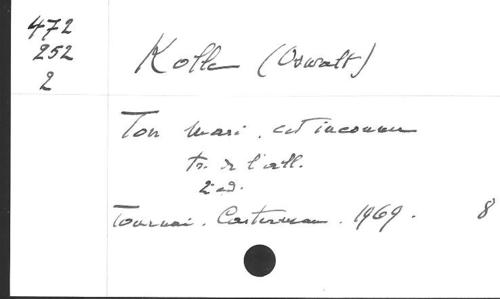 472
252
2
Kolle (Oswalt)
Ton mari, cet inconnu
tr. de l'all.
2e ed.
Tournai. Casterman. 1969. 8